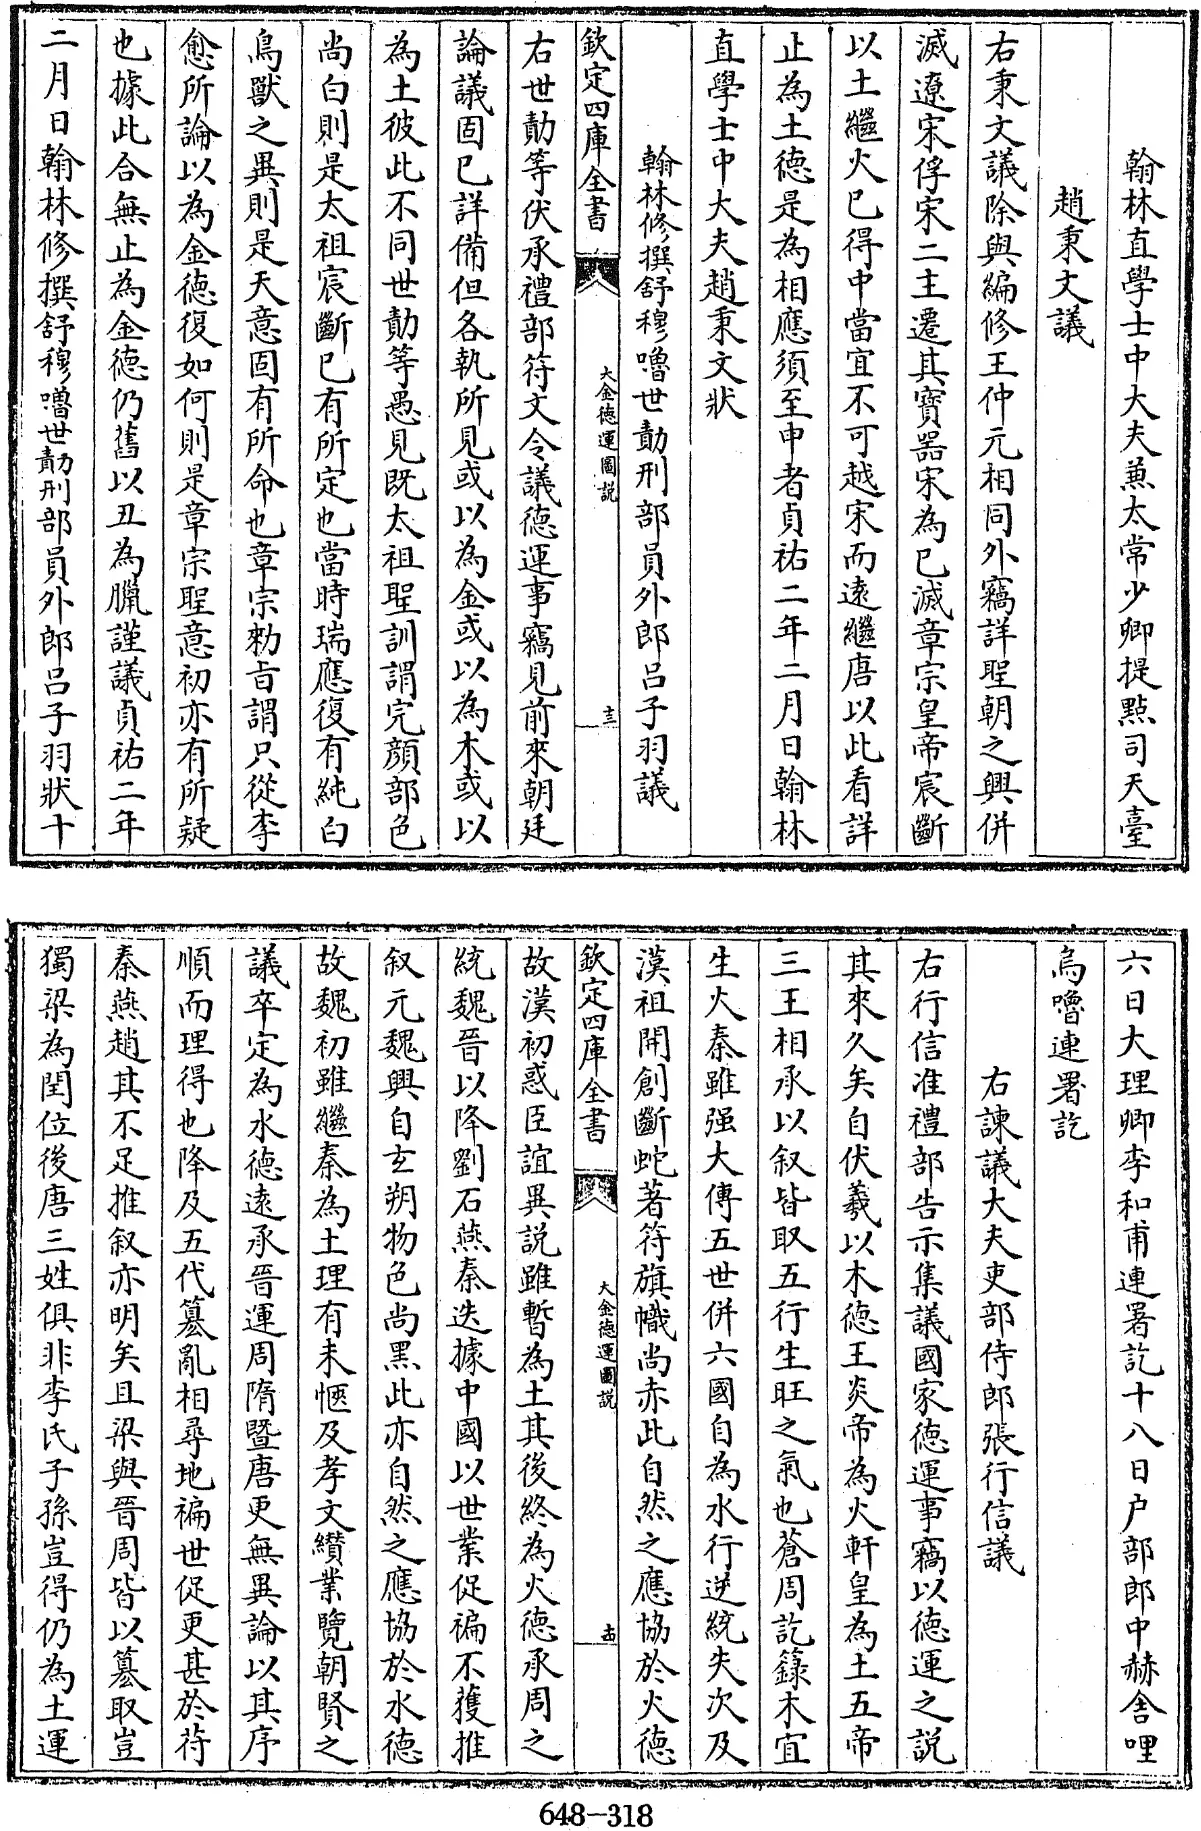 翰林直學士中大夫兼太常少卿提點司天臺
趙秉文議
右秉文議除與編修王仲元相同外竊詳聖朝之興併
滅遼宋俘宋二主遷其寳器宋為已滅章宗皇帝宸斷
以土繼火已得中當宜不可越宋而遠繼唐以此看詳
止為土德是為相應須至申者貞祐二年二月日翰林
直學士中大夫趙秉文狀
翰林修撰舒穆嚕世勣刑部員外郎呂子羽議
欽定四庫全書
大金德運圖説
十三
右世勣等伏承禮部符文令議德運事竊見前來朝廷
論議固已詳備但各執所見或以為金或以為木或以
為土彼此不同世勣等愚見既太祖聖訓謂完顔部色
尚白則是太祖宸斷已有所定也當時瑞應復有純白
鳥獸之異則是天意固有所命也章宗勅旨謂只從李
愈所論以為金德復如何則是章宗聖意初亦有所疑
也據此合無止為金德仍舊以丑為臘謹議貞祐二年
二月日翰林修撰舒穆嚕世勣刑部員外郎呂子羽狀十
六日大理卿李和甫連署訖十八日户部郎中赫舎哩
烏嚕連署訖
右諫議大夫吏部侍郎張行信議
右行信准禮部告示集議國家德運事竊以德運之説
其來久矣自伏羲以木德王炎帝為火軒皇為土五帝
三王相承以叙皆取五行生旺之氣也蒼周訖籙木宜
生火秦雖强大傳五世併六國自為水行逆統失次及
漢祖開創斷蛇著符旗幟尚赤此自然之應協於火德
欽定四庫全書
大金德運圖説
十四
故漢初惑臣誼異説雖暫為土其後終為火德承周之
統魏晉以降劉石燕秦迭據中國以世業促褊不獲推
叙元魏興自玄朔物色尚黑此亦自然之應協於水德
故魏初雖繼秦為土理有未愜及孝文纘業覽朝賢之
議卒定為水德遠承晉運周隋暨唐更無異論以其序
順而理得也降及五代簒亂相尋地褊世促更甚於苻
秦燕趙其不足推叙亦明矣且梁與晉周皆以簒取豈
獨梁為閏位後唐三姓俱非李氏子孫豈得仍為土運
648-318